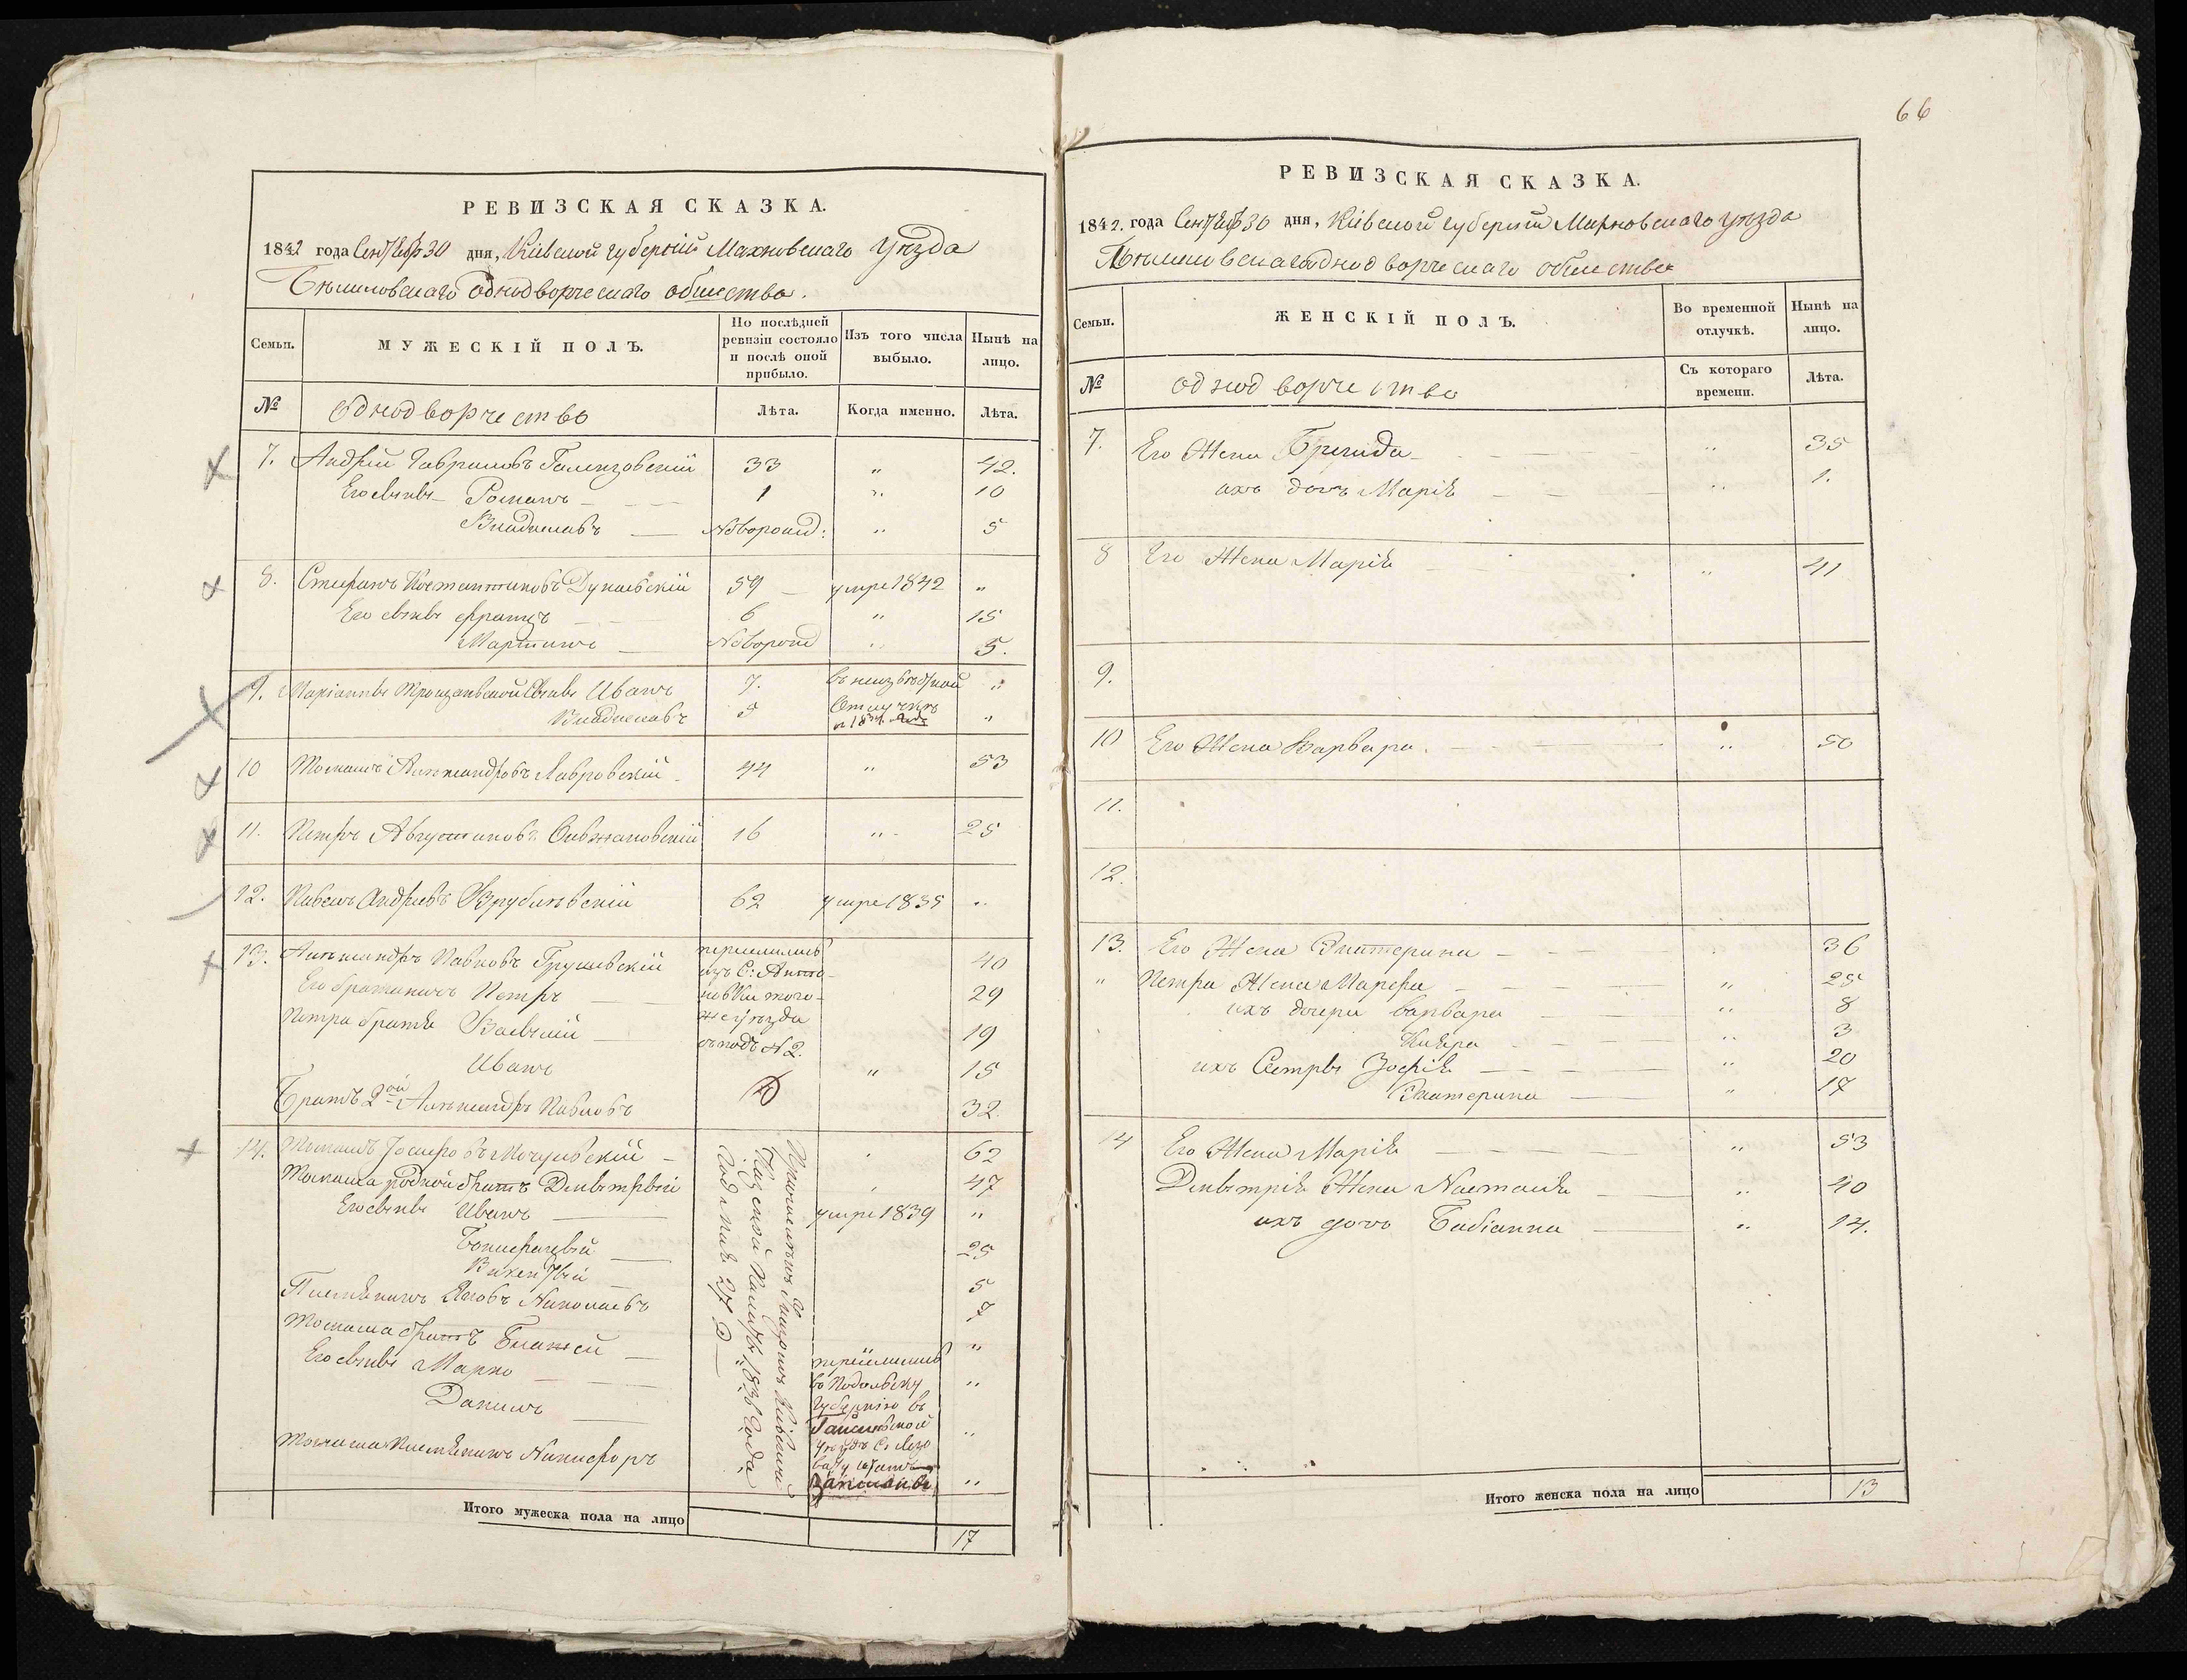 66
РЕВИЗСКАЯ СКАЗКА.
1842 года Сентября 30 дня, Кіевской губерніи Махновскаго уѣзда
Бѣлиловскаго однодворческаго общества.
Семьи. МУЖЕСКІЙ ПОЛЪ. По послѣдней ревизіи состояло и послѣ оной прибыло. Изъ того числа выбыло. Нынѣ на лицо.
№ однодворчество Лѣта. Когда именно. Лѣта.
7. Андрій Гавриловъ 33 " 42.
Его сынъ Романъ 1 " 10
Владиславъ Новорожд: " 5
8. Стефанъ Костантиновъ Дунаевскій 59 умре 1842 "
Его сынъ Францъ 6 " 15
МартинъНоворожд " 5.
9. Маріанны сынъ Иванъ 7. въ неизвѣстной "
Владиславъ 5 отлучкѣ "
10 Томашъ Александровъ Лавровскій 44 " 53
11. Петръ Августиновъ 16 " 25
12. Павелъ Андріевъ Врублевскій 62 умре 1835 "
13. Александръ Павловъ Грушевскій переселились 40
изъ С: Анто-
Его братаничъ Петръ новки того- 29
же уѣзда
Петра братья Василій 19
подъ N 2.
Иванъ " 15
Братъ 2ой Александръ Павловъ 32.
14. Томашъ Іосифовъ 62
Томаша родной братъ Дмытрый 47
Его сынъ Иванъ умре 1839 "
Бонифацый 25
Викентый 5
Племянникъ Яковъ Николаевъ 7
Томаша братъ Блажей "
Его сынъ Марко переселились "
въ Подольску
Данило губернію въ
Гайсинской "
уѣздъ
Томаша племянникъ Никифоръ "
Причисленъ Указомъ Кіевской
Казенной Палаты 1838 года
27 д
Итого мужеска пола на лицо 17
РЕВИЗСКАЯ СКАЗКА.
1842. года Сентября 30 дня, Кіевской губерніи Махновскаго уѣзда
Бѣлиловскаго однодворческаго общества
Семьи. ЖЕНСКІЙ ПОЛЪ. Во временной отлучкѣ. Нынѣ на лицо.
№ однодворчество Съ котораго времени. Лѣта.
7. Его Жена Бригида " 35
ихъ дочъ Марія " 1.
8 Его Жена Марія " 41
9.
10 Его Жена Варвара " 50
11.
12.
13. Его Жена Екатерина 36
" Петра Жена Марфа " 25
ихъ дочери Варвара " 8
3
ихъ Сестры Зофія " 20
Екатерина " 17
14 Его Жена Марія " 53
Дмытрія Жена Настасія " 40
ихъ дочъ " 14.
Итого женска пола на лицо 13